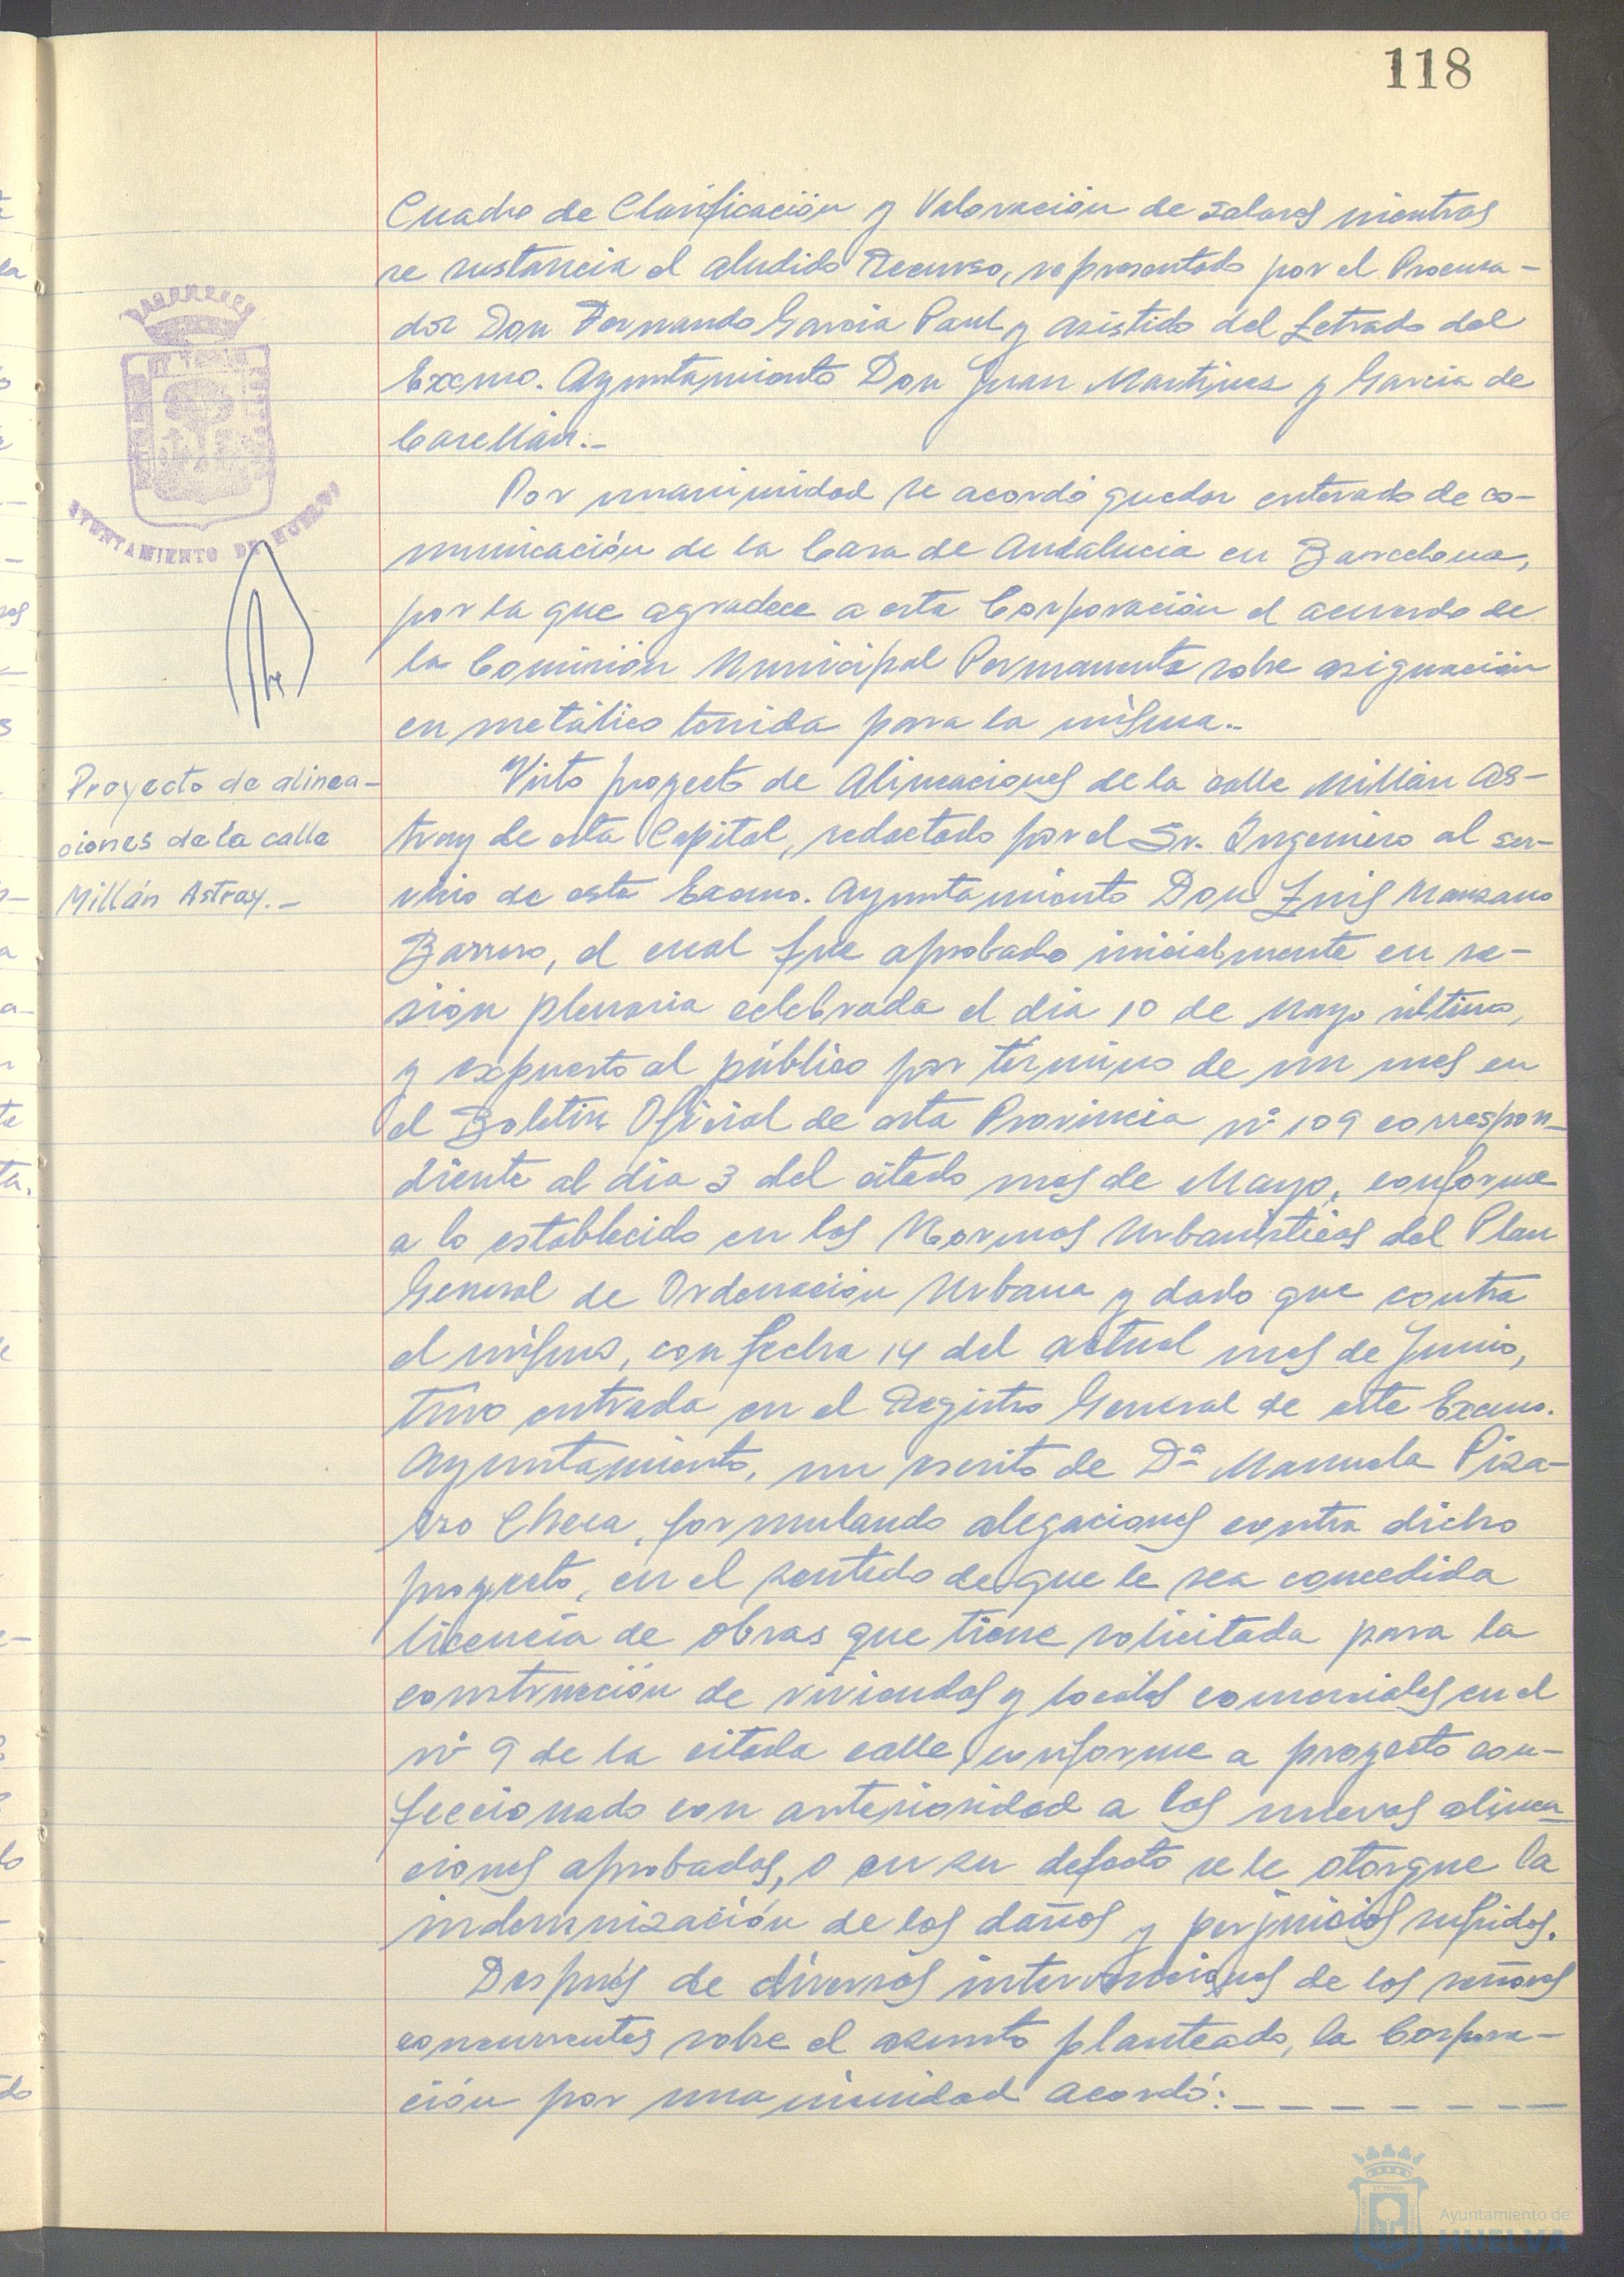 118
Cuadro de Clasificación y Valoración de solares mientras
se sustancia el aludido Recurso, representado por el Procura-
dor Don Fernando García Paul y asistido del Letrado del
Excmo. Ayuntamiento Don Juan Martínez y García de
Casellán.-
Por unanimidad se acordó quedar enterado de co-
municación de la Casa de Andalucía en Barcelona,
por la que agradece a esta Corporación el acuerdo de
la Comisión Municipal Permanente sobre asignación
en metálico tenida para la misma.-
Proyecto de alinea-
ciones de la calle
Millán Astray.-
Visto proyecto de Alineaciones de la calle Millán As-
tray de esta Capital, redactado por el Sr. Ingeniero al ser-
vicio de este Excmo. Ayuntamiento Don Luis Manzano
Barrero, el cual fue aprobado inicialmente en se-
sión plenaria celebrada el día 10 de Mayo último,
y expuesto al público por término de un mes en
el Boletín Oficial de esta Provincia nº 109 correspon-
diente al día 3 del citado mes de Mayo, conforme
a lo establecido en las Normas Urbanísticas del Plan
General de Ordenación Urbana y dado que contra
el mismo, con fecha 14 del actual mes de Junio,
tuvo entrada en el Registro General de este Excmo.
Ayuntamiento, un escrito de Dª Manuela Piza-
rro Checa, formulando alegaciones contra dicho
proyecto, en el sentido de que le sea concedida
licencia de obras que tiene solicitada para la
construcción de viviendas y locales comerciales en el
nº 9 de la citada calle, conforme a proyecto con-
feccionado con anterioridad a las nuevas alinea-
ciones aprobadas, o en su defecto se le otorgue la
indemnización de los daños y perjuicios sufridos.
Después de diversas intervenciones de los señores
concurrentes sobre el asunto planteado, la Corpora-
ción por unanimidad acordó:- - - - - - - -
AYUNTAMIENTO DE HUELVA
Ayuntamiento de
HUELVA